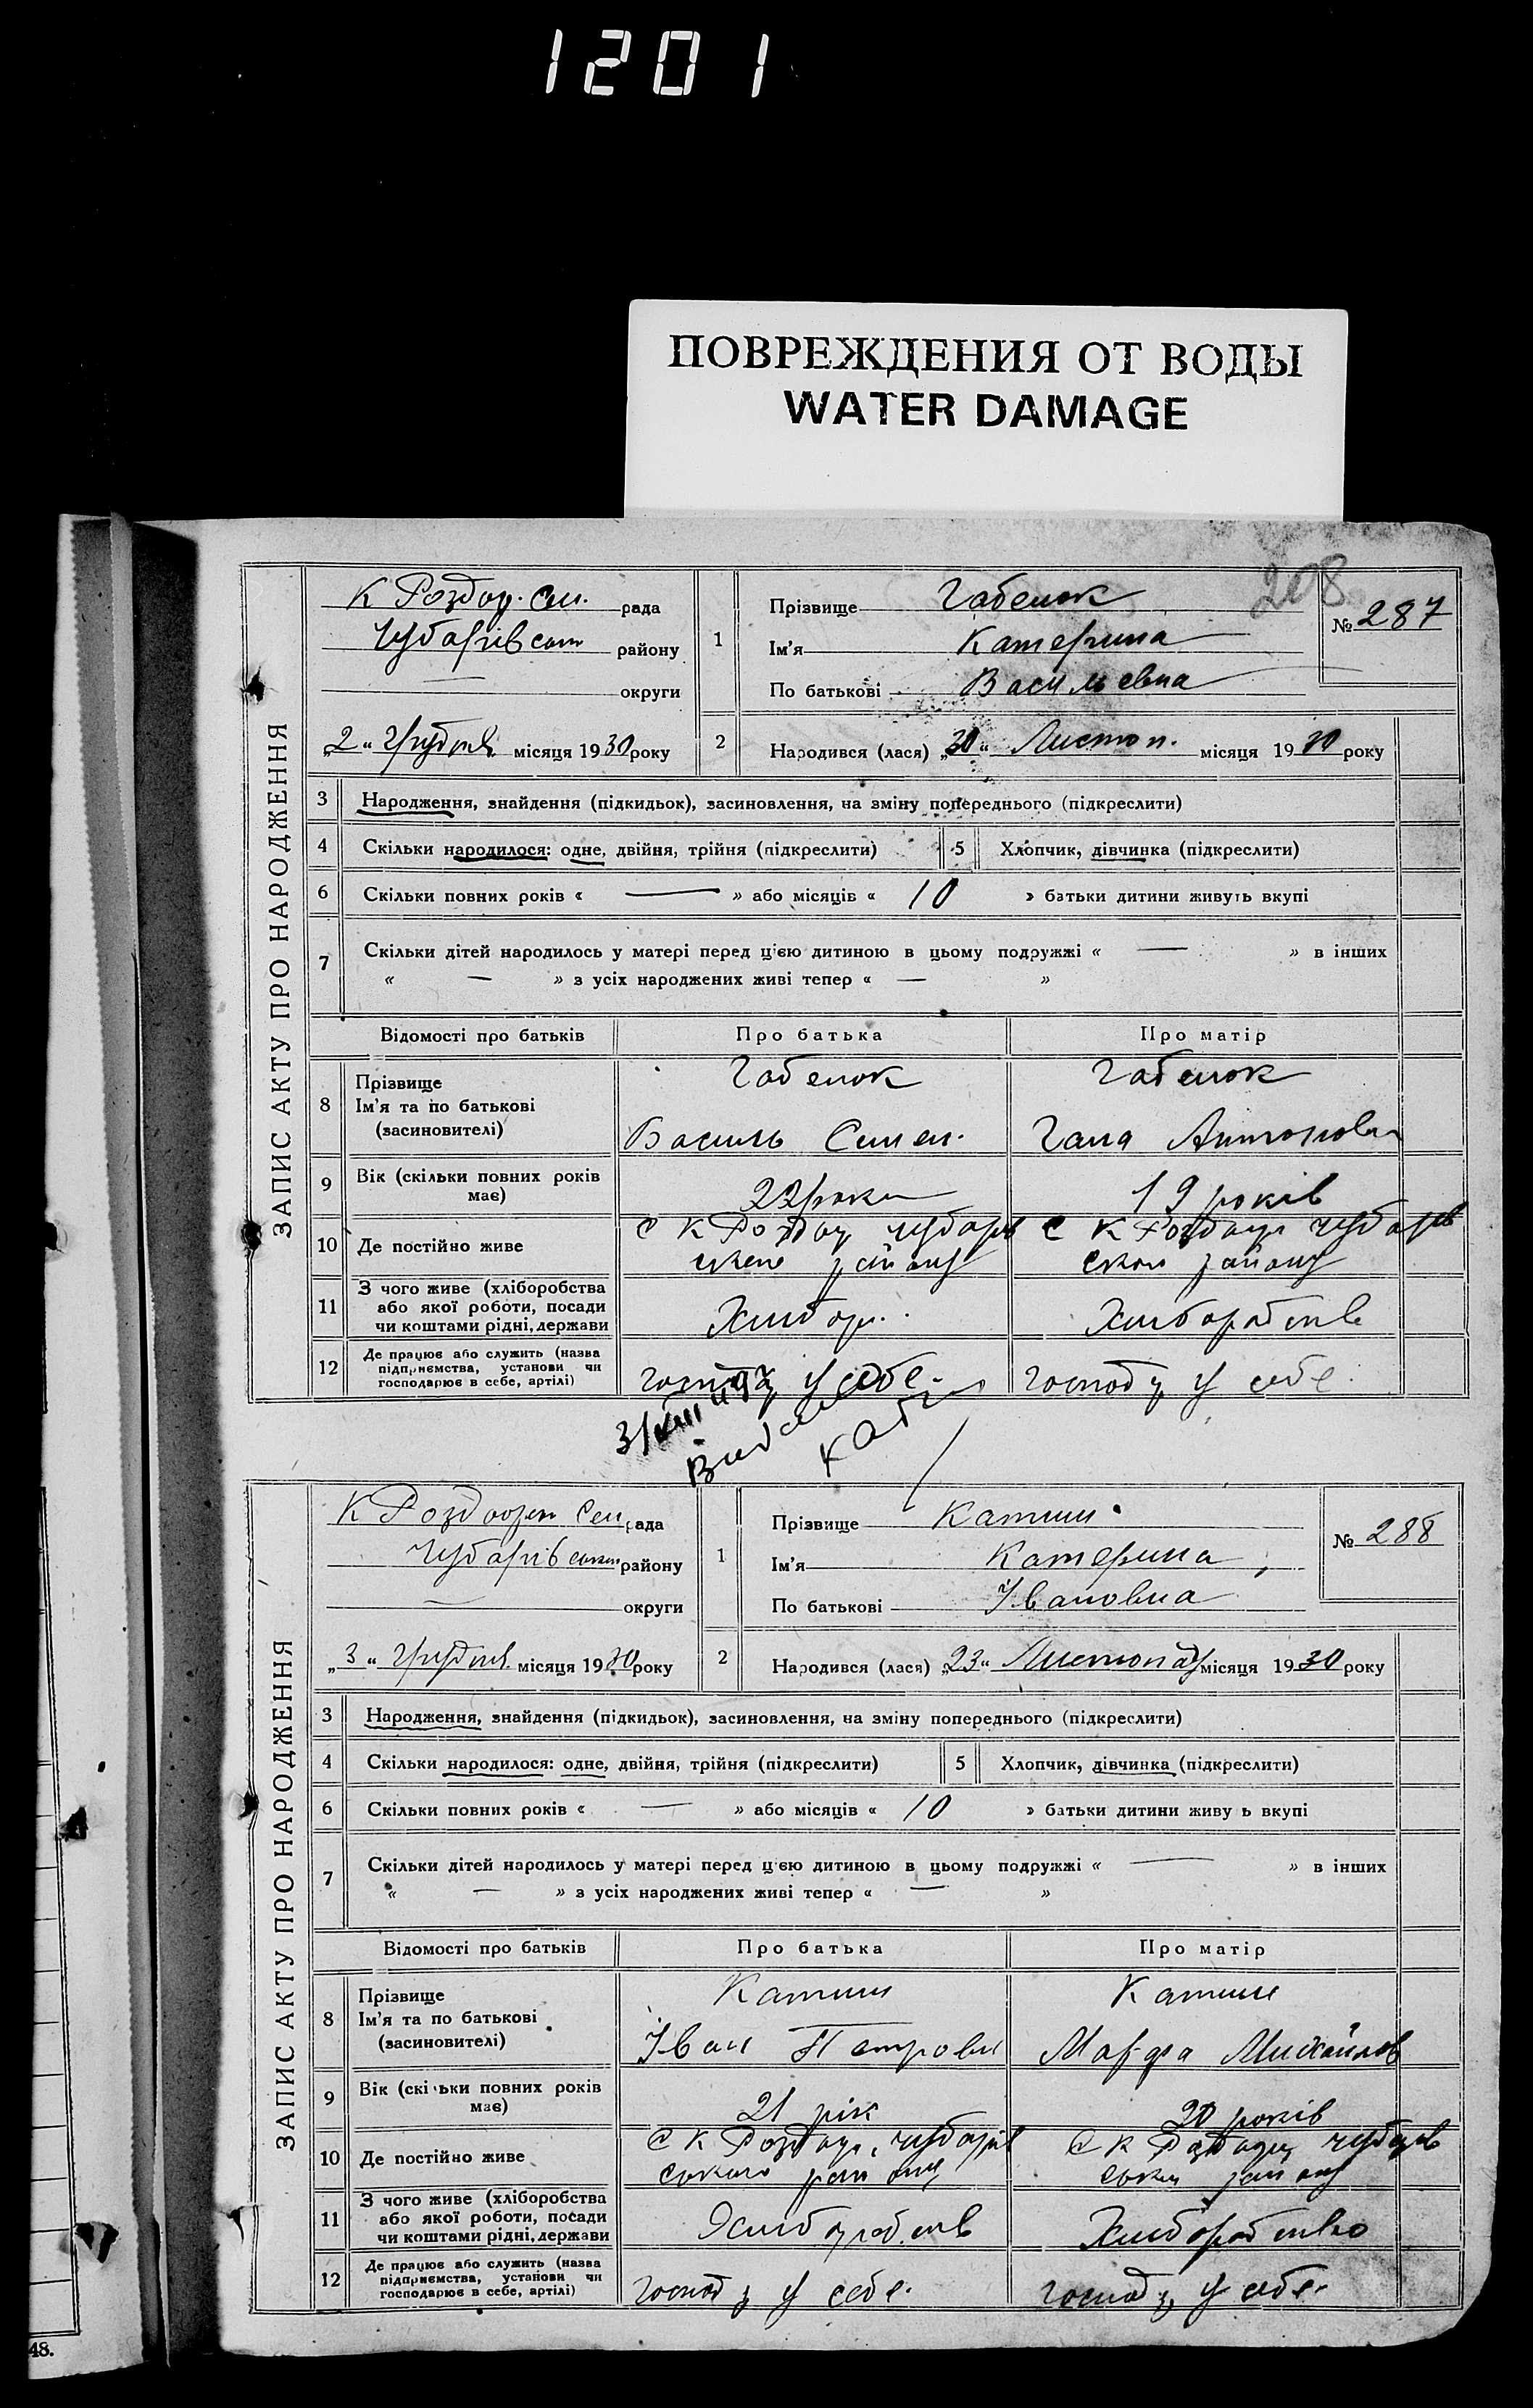 1201
ПОВРЕЖДЕНИЯ ОТ ВОДЫ
WATER DAMAGE
208
ЗАПИС АКТУ ПРО НАРОДЖЕННЯ
К Роздор. Сел. рада
Чубарівськ району
— округи
„2“ Грудня місяця 1930 року
1 Прізвище Габелок
Ім'я Катерина
По батькові Васильевна
№ 287
2 Народився (лася) „30“ Листоп. місяця 1930 року
3 Народження, знайдення (підкидьок), засиновлення, на зміну попереднього (підкреслити)
4 Скільки народилося: одне, двійня, трійня (підкреслити) 5 Хлопчик, дівчинка (підкреслити)
6 Скільки повних років « — » або місяців « 10 » батьки дитини живуть вкупі
7 Скільки дітей народилось у матері перед цією дитиною в цьому подружжі « — » в інших
« — » з усіх народжених живі тепер « — »
Відомості про батьків Про батька Про матір
8 Прізвище Ім'я та по батькові (засиновителі)
Габелок Габелок
Василь Семен. Гана Антоновн
9 Вік (скільки повних років має) 22 роки 19 років
10 Де постійно живе
С К Роздор Чубарів С К Роздор Чубарів
ського району ського району
11 З чого живе (хліборобства або якої роботи, посади чи коштами рідні, держави Хлібор. Хліборобств
12 Де працює або служить (назва підприємства, установи чи господарює в себе, артілі) господ у себе. господ у себе.
ЗАПИС АКТУ ПРО НАРОДЖЕННЯ
К Роздорск Сел рада
Чубарівськ району
— округи
„3“ Грудня місяця 1930 року
1 Прізвище Катиш
Ім'я Катерина
По батькові Івановна
№ 288
2 Народився (лася) „23“ Листопад місяця 1930 року
3 Народження, знайдення (підкидьок), засиновлення, на зміну попереднього (підкреслити)
4 Скільки народилося: одне, двійня, трійня (підкреслити) 5 Хлопчик, дівчинка (підкреслити)
6 Скільки повних років « — » або місяців « 10 » батьки дитини живу ь вкупі
7 Скільки дітей народилось у матері перед цією дитиною в цьому подружжі « — » в інших
« — » з усіх народжених живі тепер « — »
Відомості про батьків Про батька Про матір
8 Прізвище Ім'я та по батькові (засиновителі)
Катиш Катиш
Іван Петрович Марфа Михайлов
9 Вік (скільки повних років має) 21 рік 20 років
10 Де постійно живе
С К Роздор. Чубарів С К Роздор Чубарів
ського району ськ району
11 З чого живе (хліборобства або якої роботи, посади чи коштами рідні, держави Хліборобств Хліборобство
12 Де працює або служить (назва підприємства, установи чи господарює в себе, артілі) господ у себе. господ у себе.
48.